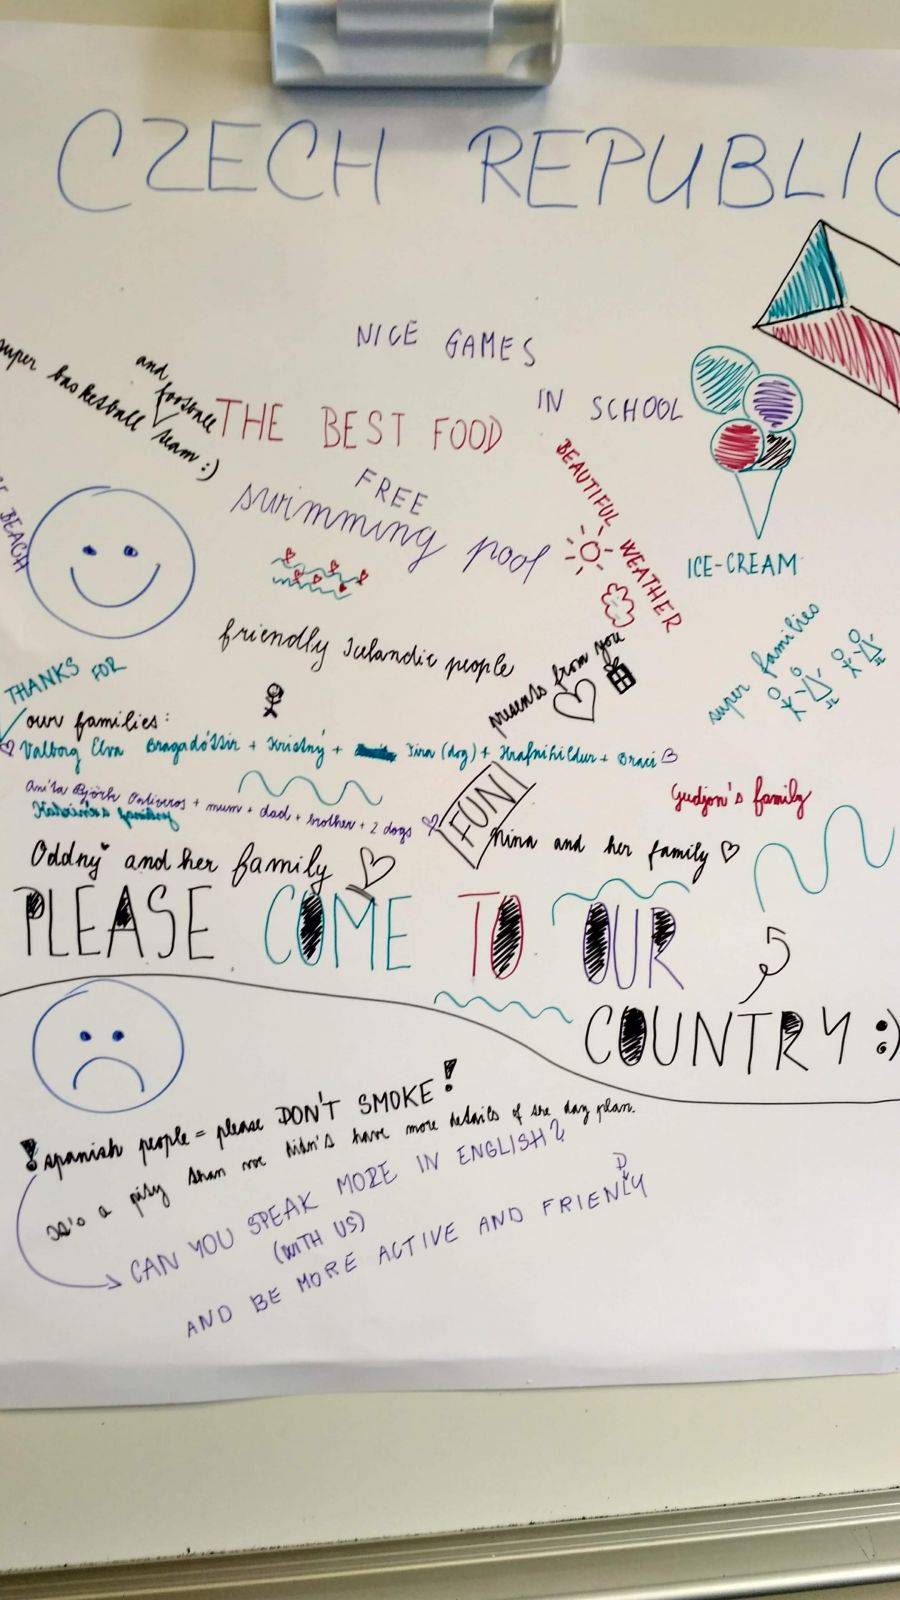 CZECH REPUBLIC
NICE GAMES
IN SCHOOL
super basketball
and football
team :)
THE BEST FOOD
FREE
swimming pool
BEAUTIFUL
WEATHER
BEACH
ICE-CREAM
friendly Icelandic people
presents from you
super families
THANKS FOR
our families:
Valborg Elva Bragadóttir + Kristný + Tina (dog) + Hrafnhildur + Braci
Anita Björk Ontiveros + mum + dad + brother + 2 dogs
Gudjon's family
family
FUN!
Nina and her family
Oddný and her family
PLEASE COME TO OUR
COUNTRY :)
! spanish people = please DON'T SMOKE!
It's a pity than we didn't have more details of the day plan.
CAN YOU SPEAK MORE IN ENGLISH?
(WITH US)
AND BE MORE ACTIVE AND FRIENLY
D